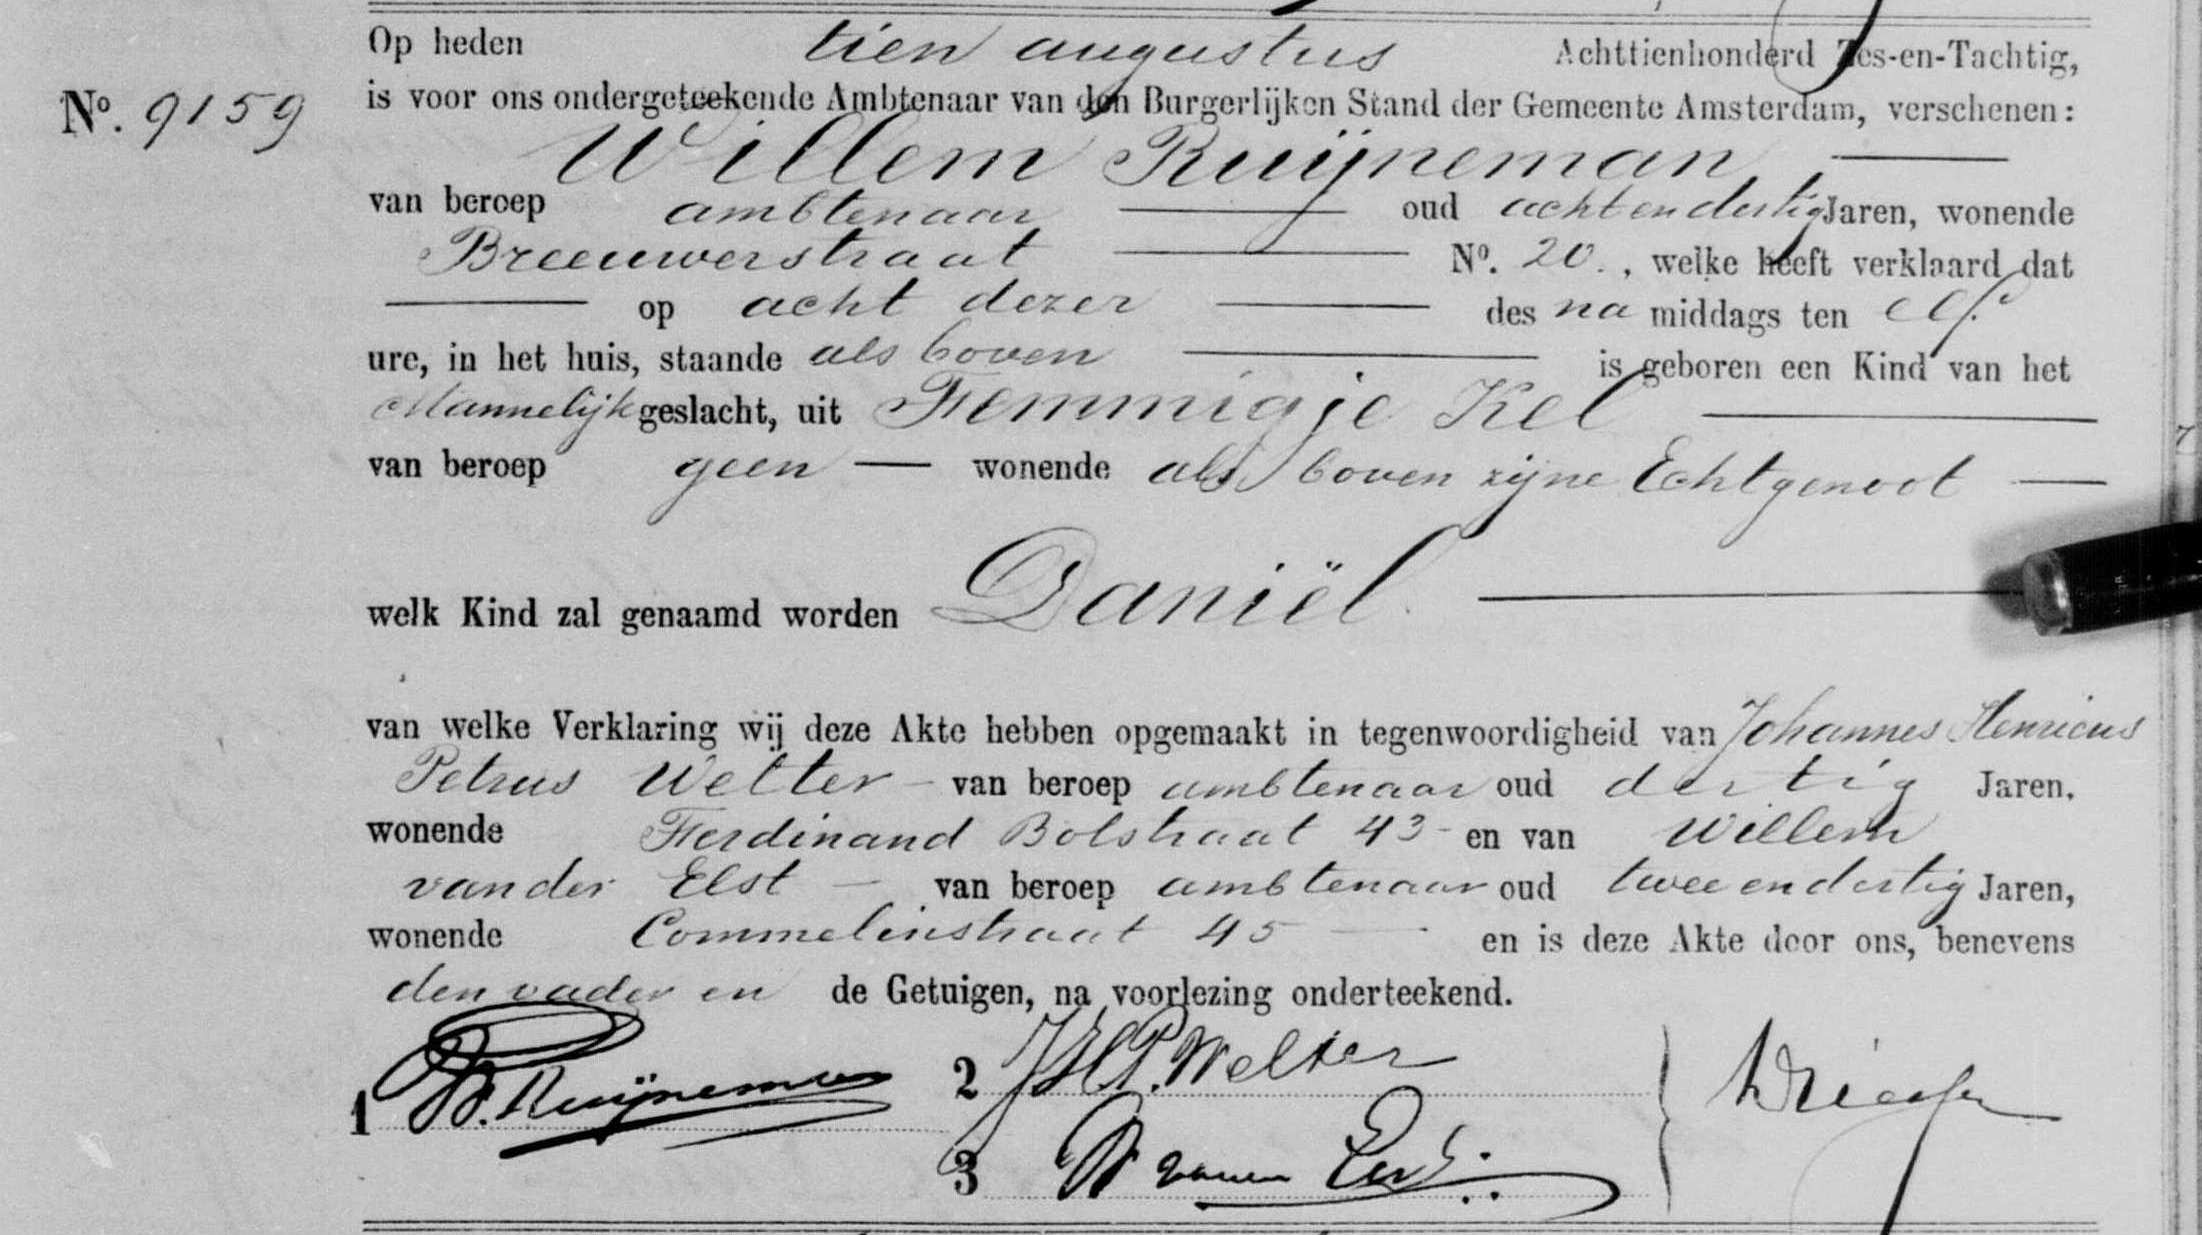 Op heden tien augustus Achttienhonderd Zes-en-Tachtig,
No. 9159 is voor ons ondergeteekende Ambtenaar van den Burgerlijken Stand der Gemeente Amsterdam, verschenen:
Willem Ruijneman
van beroep ambtenaar oud achtendertig Jaren, wonende
Breeuwerstraat No. 20., welke heeft verklaard dat
op acht dezer des na middags ten elf
ure, in het huis, staande als boven is geboren een Kind van het
Mannelijk geslacht, uit Femmigje Kel
van beroep geen wonende als boven zijne Echtgenoot
welk Kind zal genaamd worden Daniël
van welke Verklaring wij deze Akte hebben opgemaakt in tegenwoordigheid van Johannes Henricus
Petrus Welter van beroep ambtenaar oud dertig Jaren,
wonende Ferdinand Bolstraat 43 en van Willem
van der Elst van beroep ambtenaar oud twee en dertig Jaren,
wonende Commelinstraat 45 en is deze Akte door ons, benevens
den vader en de Getuigen, na voorlezing onderteekend.
1 W. Ruijneman 2 J.H.P. Welter
3 W van der Elst